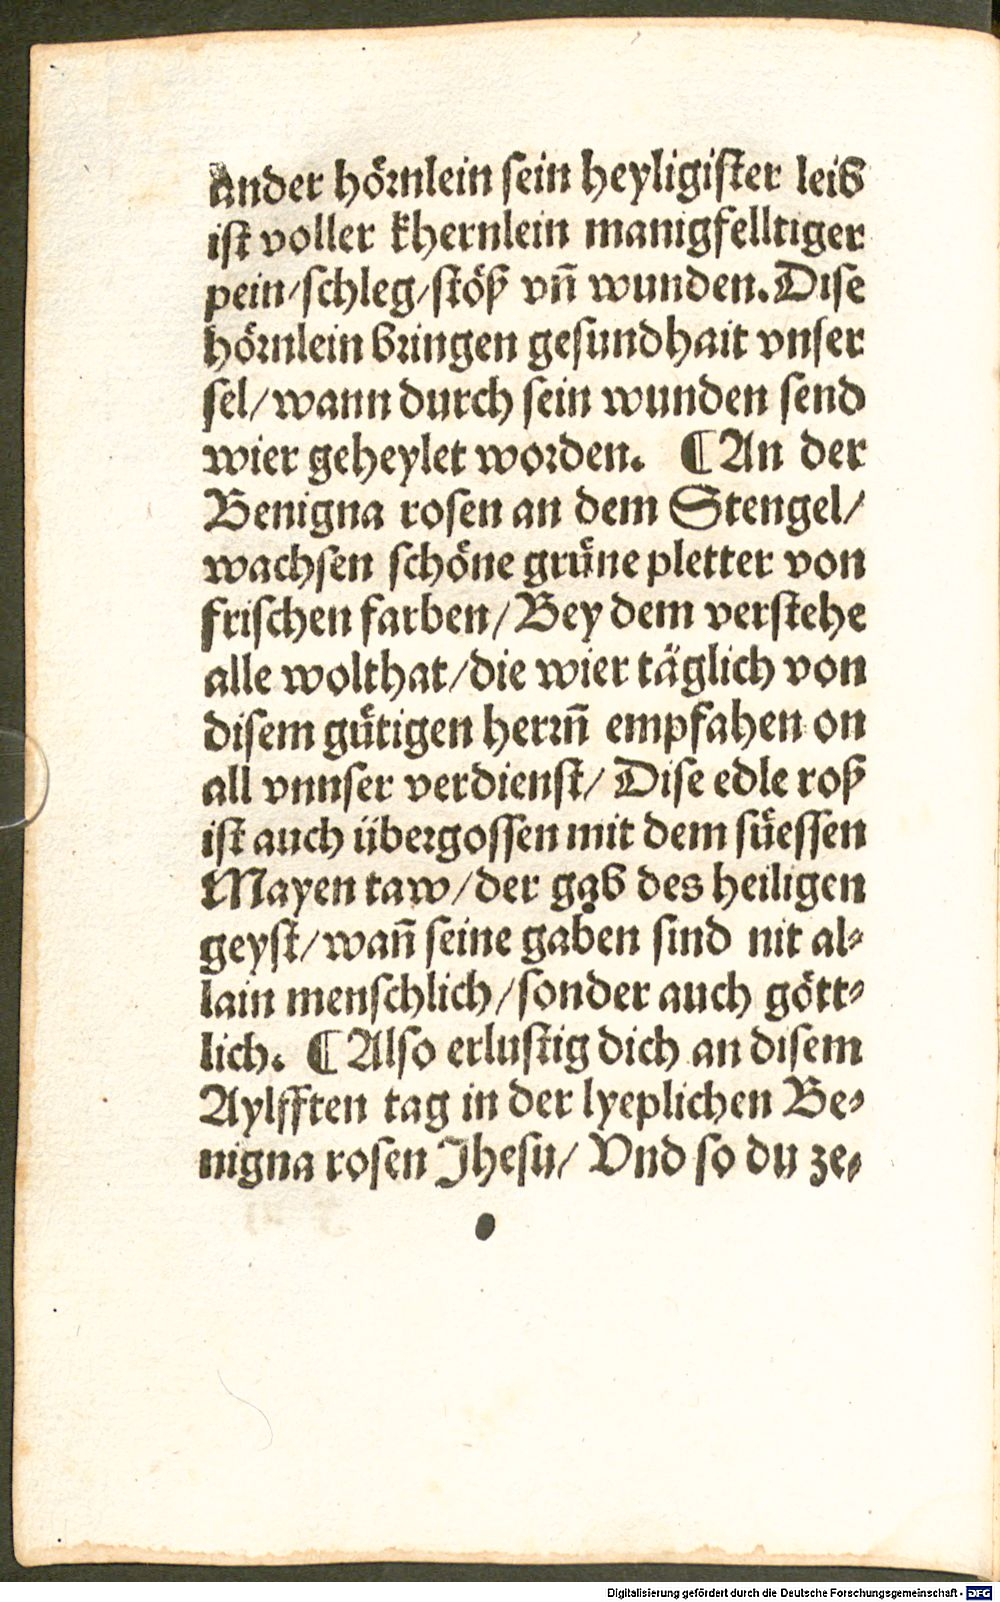 ander hörnlein sein heyligister leib
ist voller khernlein manigfelltiger
pein/schleg/stöß vñ wunden. Dise
hörnlein bringen gesundhait vnser
sel/wann durch sein wunden send
wier geheylet worden. ¶ An der
Benigna rosen an dem Stengel/
wachsen schöne grüne pletter von
frischen farben/Bey dem verstehe
alle wolthat/die wier täglich von
disem gütigen herrñ empfahen on
all vnnser verdienst/ Dise edle roß
ist auch übergossen mit dem süessen
Mayen taw/der gab des heiligen
geyst/wañ seine gaben sind nit al-
lain menschlich/sonder auch gött-
lich. ¶ Also erlustig dich an disem
Aylfften tag in der lyeplichen Be-
nigna rosen Jhesu/ Vnd so du ze-
Digitalisierung gefördert durch die Deutsche Forschungsgemeinschaft - DFG